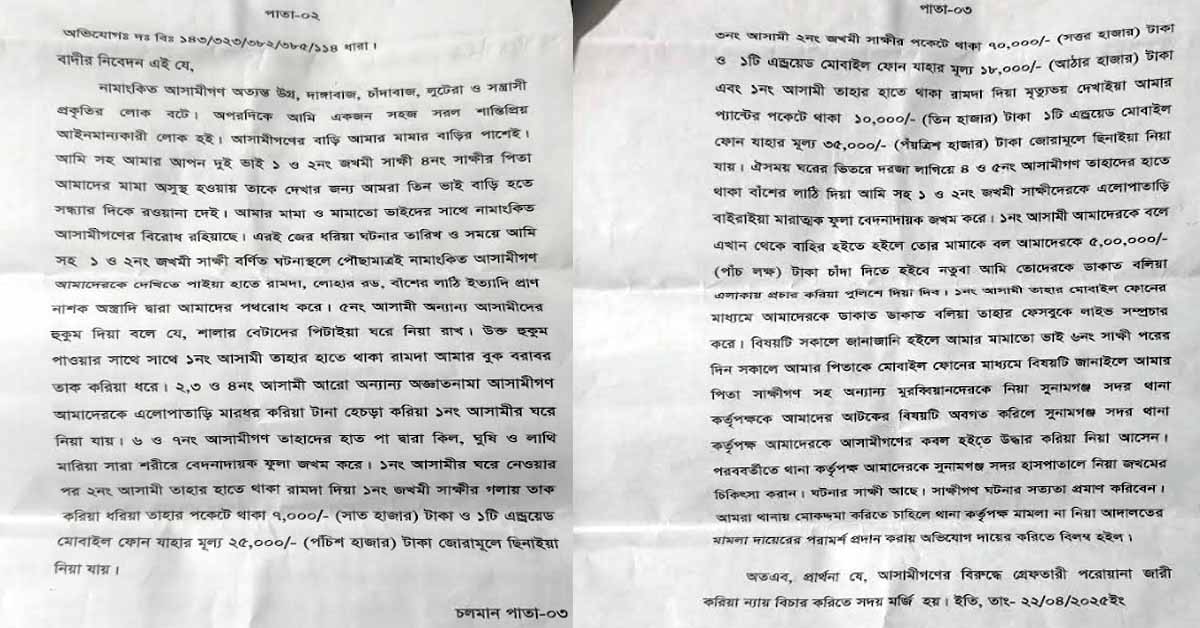 পাতা-০২
অভিযোগঃ দঃ বিঃ ১৪৩/৩২৩/৩৮২/৩৮৫/১১৪ ধারা।
বাদীর নিবেদন এই যে,
নামাংকিত আসামীগণ অত্যন্ত উগ্র, দাঙ্গাবাজ, চাঁদাবাজ, লুটেরা ও সন্ত্রাসী
প্রকৃতির লোক বটে। অপরদিকে আমি একজন সহজ সরল শান্তিপ্রিয়
আইনমান্যকারী লোক হই। আসামীগণের বাড়ি আমার মামার বাড়ির পাশেই।
আমি সহ আমার আপন দুই ভাই ১ ও ২নং জখমী সাক্ষী ৪নং সাক্ষীর পিতা
আমাদের মামা অসুস্থ হওয়ায় তাকে দেখার জন্য আমরা তিন ভাই বাড়ি হতে
সন্ধ্যার দিকে রওয়ানা দেই। আমার মামা ও মামাতো ভাইদের সাথে নামাংকিত
আসামীগণের বিরোধ রহিয়াছে। এরই জের ধরিয়া ঘটনার তারিখ ও সময়ে আমি
সহ ১ ও ২নং জখমী সাক্ষী বর্ণিত ঘটনাস্থলে পৌছামাত্রই নামাংকিত আসামীগণ
আমাদেরকে দেখিতে পাইয়া হাতে রামদা, লোহার রড, বাঁশের লাঠি ইত্যাদি প্রাণ
নাশক অস্ত্রাদি দ্বারা আমাদের পথরোধ করে। ৫নং আসামী অন্যান্য আসামীদের
হুকুম দিয়া বলে যে, শালার বেটাদের পিটাইয়া ঘরে নিয়া রাখ। উক্ত হুকুম
পাওয়ার সাথে সাথে ১নং আসামী তাহার হাতে থাকা রামদা আমার বুক বরাবর
তাক করিয়া ধরে। ২,৩ ও ৪নং আসামী আরো অন্যান্য অজ্ঞাতনামা আসামীগণ
আমাদেরকে এলোপাতাড়ি মারধর করিয়া টানা হেচড়া করিয়া ১নং আসামীর ঘরে
নিয়া যায়। ৬ ও ৭নং আসামীগণ তাহাদের হাত পা দ্বারা কিল, ঘুষি ও লাথি
মারিয়া সারা শরীরে বেদনাদায়ক ফুলা জখম করে। ১নং আসামীর ঘরে নেওয়ার
পর ২নং আসামী তাহার হাতে থাকা রামদা দিয়া ১নং জখমী সাক্ষীর গলায় তাক
করিয়া ধরিয়া তাহার পকেটে থাকা ৭,০০০/- (সাত হাজার) টাকা ও ১টি এন্ড্রয়েড
মোবাইল ফোন যাহার মূল্য ২৫,০০০/- (পঁচিশ হাজার) টাকা জোরামূলে ছিনাইয়া
নিয়া যায়।
চলমান পাতা-০৩
পাতা-০৩
৩নং আসামী ২নং জখমী সাক্ষীর পকেটে থাকা ৭০,০০০/- (সত্তর হাজার) টাকা
ও ১টি এন্ড্রয়েড মোবাইল ফোন যাহার মূল্য ১৮,০০০/- (আঠার হাজার) টাকা
এবং ১নং আসামী তাহার হাতে থাকা রামদা দিয়া মৃত্যুভয় দেখাইয়া আমার
প্যান্টের পকেটে থাকা ১০,০০০/- (তিন হাজার) টাকা ১টি এন্ড্রয়েড মোবাইল
ফোন যাহার মূল্য ৩৫,০০০/- (পঁয়ত্রিশ হাজার) টাকা জোরামূলে ছিনাইয়া নিয়া
যায়। ঐসময় ঘরের ভিতরে দরজা লাগিয়ে ৪ ও ৫নং আসামীগণ তাহাদের হাতে
থাকা বাঁশের লাঠি দিয়া আমি সহ ১ ও ২নং জখমী সাক্ষীদেরকে এলোপাতাড়ি
বাইরাইয়া মারাত্মক ফুলা বেদনাদায়ক জখম করে। ১নং আসামী আমাদেরকে বলে
এখান থেকে বাহির হইতে হইলে তোর মামাকে বল আমাদেরকে ৫,০০,০০০/-
(পাঁচ লক্ষ) টাকা চাঁদা দিতে হইবে নতুবা আমি তোদেরকে ডাকাত বলিয়া
এলাকায় প্রচার করিয়া পুলিশে দিয়া দিব। ১নং আসামী তাহার মোবাইল ফোনের
মাধ্যমে আমাদেরকে ডাকাত ডাকাত বলিয়া তাহার ফেসবুকে লাইভ সম্প্রচার
করে। বিষয়টি সকালে জানাজানি হইলে আমার মামাতো ভাই ৬নং সাক্ষী পরের
দিন সকালে আমার পিতাকে মোবাইল ফোনের মাধ্যমে বিষয়টি জানাইলে আমার
পিতা সাক্ষীগণ সহ অন্যান্য মুরব্বিয়ানদেরকে নিয়া সুনামগঞ্জ সদর থানা
কর্তৃপক্ষকে আমাদের আটকের বিষয়টি অবগত করিলে সুনামগঞ্জ সদর থানা
কর্তৃপক্ষ আমাদেরকে আসামীগণের কবল হইতে উদ্ধার করিয়া নিয়া আসেন।
পরববতীতে থানা কর্তৃপক্ষ আমাদেরকে সুনামগঞ্জ সদর হাসপাতালে নিয়া জখমের
চিকিৎসা করান। ঘটনার সাক্ষী আছে। সাক্ষীগণ ঘটনার সত্যতা প্রমাণ করিবেন।
আমরা থানায় মোকদ্দমা করিতে চাহিলে থানা কর্তৃপক্ষ মামলা না নিয়া আদালতের
মামলা দায়েরের পরামর্শ প্রদান করায় অভিযোগ দায়ের করিতে বিলম্ব হইল।
অতএব, প্রার্থনা যে, আসামীগণের বিরুদ্ধে গ্রেফতারী পরোয়ানা জারী
করিয়া ন্যায় বিচার করিতে সদয় মর্জি হয়। ইতি, তাং- ২২/০৪/২০২৫ইং